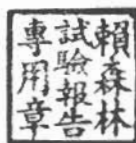 賴森林
試驗報告
專用章